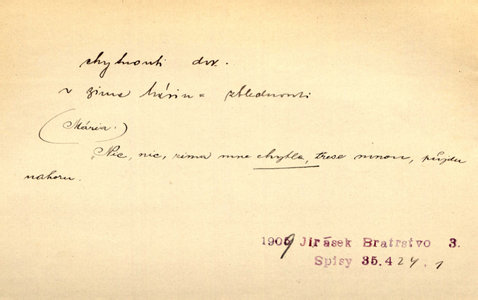 chytnouti dok.
v zima třásu = zblednouti
(Mária.)
Nic, nic, zima mne chytla, trese mnou, půjdu
nahoru.
1909 Jirásek Bratrstvo 3.
Spisy 35.424.1